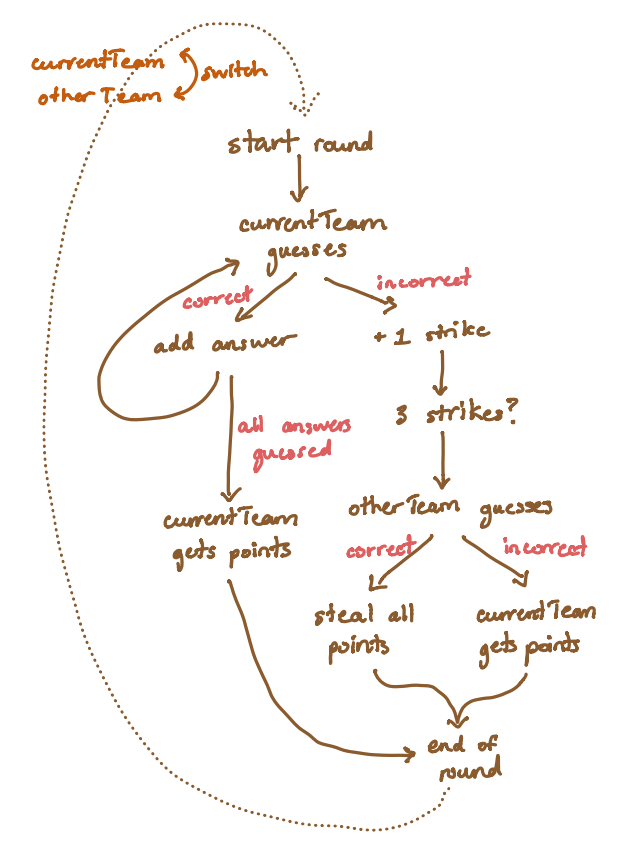 currentTeam
otherTeam
switch
start round
currentTeam
guesses
correct
incorrect
add answer
+1 strike
3 strikes?
all answers
guessed
currentTeam
gets points
otherTeam guesses
correct
incorrect
steal all
points
currentTeam
gets points
end of
round